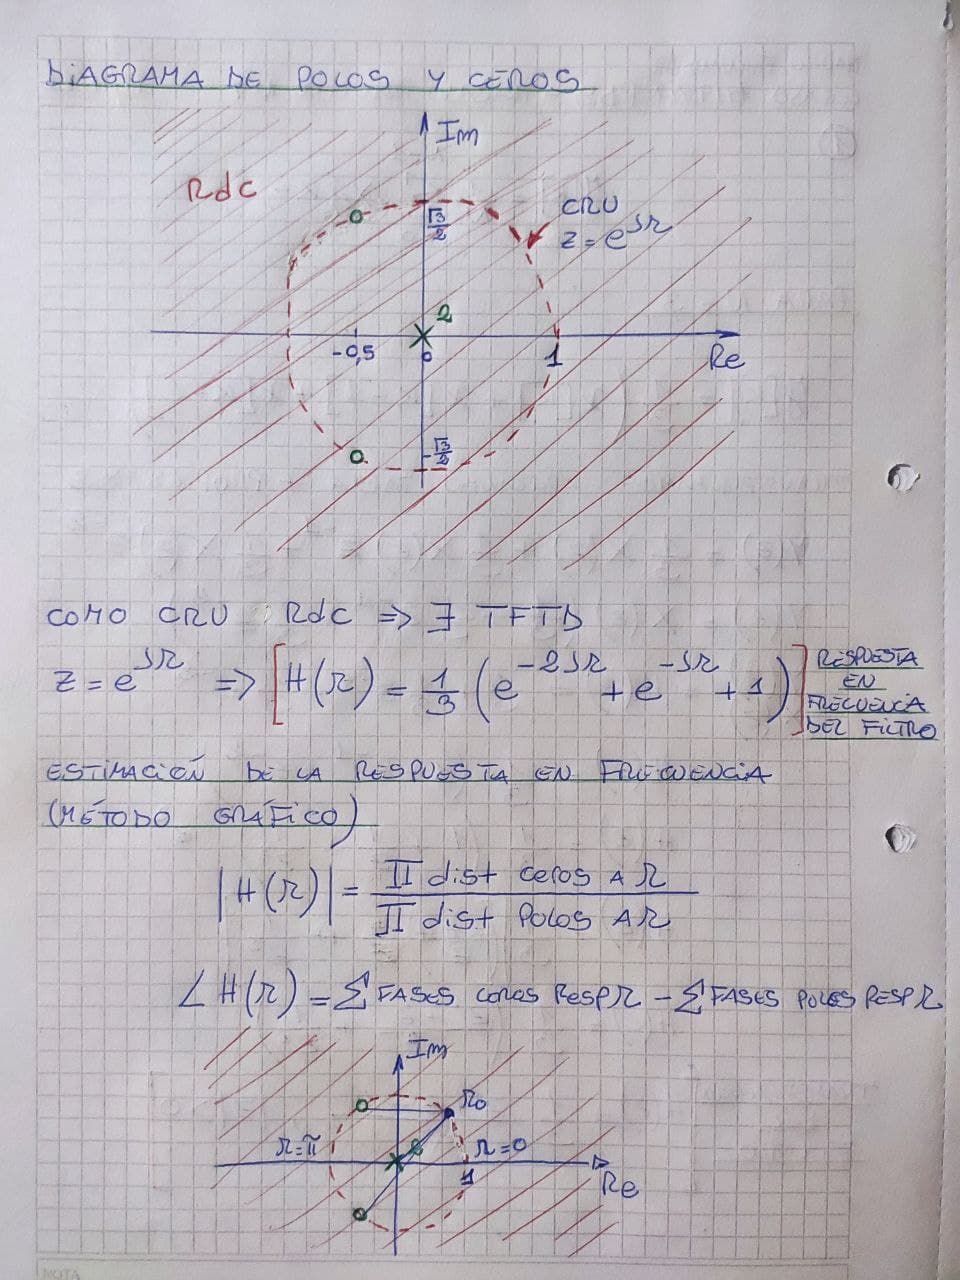 DIAGRAMA DE POLOS Y CEROS
Im
RdC
√3/2
CRU
z = e^jΩ
2
-0,5
0
1
Re
-√3/2
COMO CRU : RdC => ∃ TFTD
z = e^jΩ => [H(Ω) = 1/3 (e^-2jΩ + e^-jΩ + 1)]
RESPUESTA
EN
FRECUENCIA
DEL FILTRO
ESTIMACIÓN DE LA RESPUESTA EN FRECUENCIA
(MÉTODO GRÁFICO)
|H(Ω)| = ∏ dist ceros A Ω / ∏ dist Polos A Ω
∠H(Ω) = Σ FASES ceros RESP Ω - Σ FASES POLOS RESP Ω
Im
Ω0
Ω=π
2
Ω=0
1
Re
NOTA